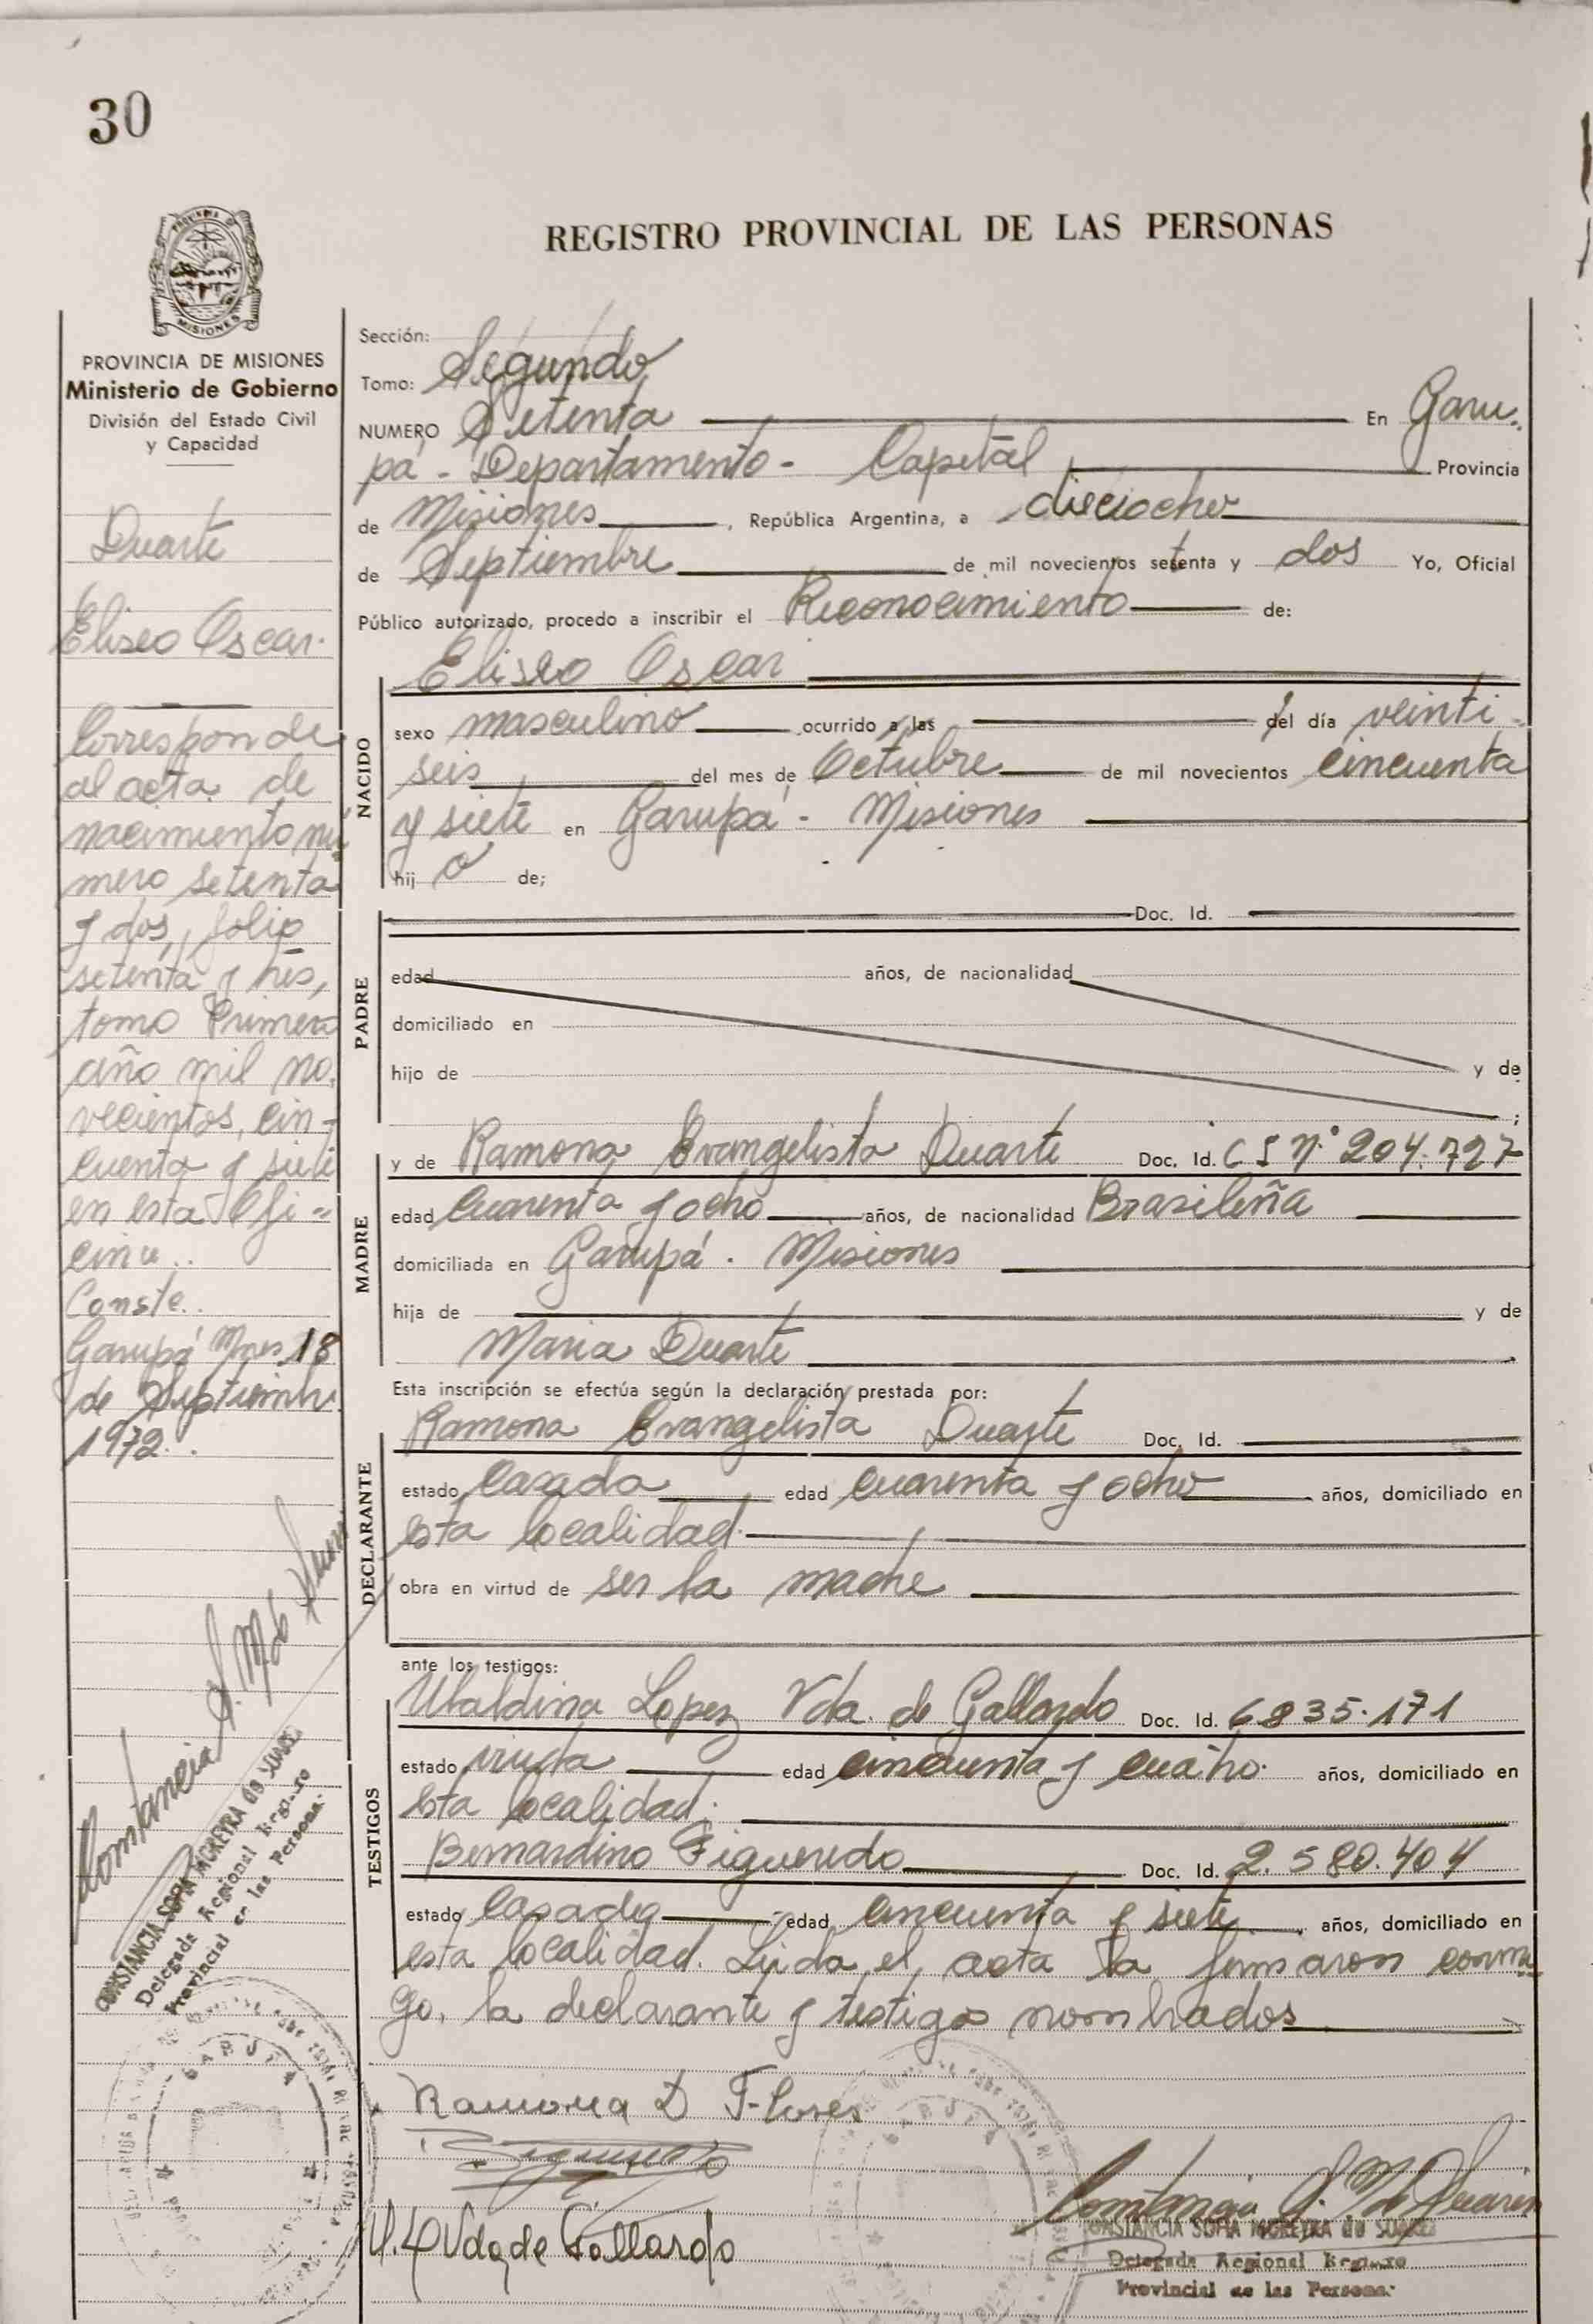 30
REGISTRO PROVINCIAL DE LAS PERSONAS
PROVINCIA DE MISIONES
Ministerio de Gobierno
División del Estado Civil
y Capacidad
Duarte
Eliseo Oscar.
Corresponde
al acta de
nacimiento nú
mero setenta
y dos, folio
setenta y tres,
tomo Primero
año mil no.
vecientos, cin-
cuenta y siete
en esta Ofi=
cina..
Conste..
Garupá Mnes 18
de Septiembre
1972..
CONSTANCIA SOFIA MOREYRA de SUAREZ
Delegada Regional Registro
Provincial de las Personas
Sección:
Tomo: Segundo
NUMERO Setenta En Garu.
pá - Departamento - Capital Provincia
de Misiones, República Argentina, a dieciocho
de Septiembre de mil novecientos setenta y dos Yo, Oficial
Público autorizado, procedo a inscribir el Reconocimiento de:
Eliseo Oscar
NACIDO
sexo masculino ocurrido a las del día veinti-
seis del mes de Octubre de mil novecientos cincuenta
y siete en Garupá - Misiones
hij o de;
PADRE
Doc. Id.
edad años, de nacionalidad
domiciliado en
hijo de y de
;
MADRE
y de Ramona Evangelista Duarte Doc. Id. C I N° 204.727
edad cuarenta y ocho años, de nacionalidad Brasileña
domiciliada en Garupá. Misiones
hija de y de
Maria Duarte
Esta inscripción se efectúa según la declaración prestada por:
DECLARANTE
Ramona Evangelista Duarte Doc. Id.
estado Casada edad cuarenta y ocho años, domiciliado en
esta localidad.
obra en virtud de ser la madre
ante los testigos:
TESTIGOS
Ubaldina Lopez Vda. de Gallardo Doc. Id. 6.835.171
estado viuda edad cincuenta y cuatro. años, domiciliado en
esta localidad.
Bernardino Figueredo Doc. Id. 2.580.404
estado Casado edad cincuenta y siete años, domiciliado en
esta localidad. Leída el, acta la firmaron conmi
go, la declarante y testigos nombrados
Ramona D Flores
U. L Vda de Gallardo
Constancia S. M de Suarez
CONSTANCIA SOFIA MOREYRA de SUAREZ
Delegada Regional Registro
Provincial de las Personas